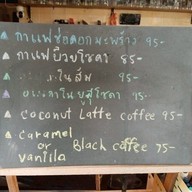 กาแฟช่อดอกมะพร้าว 95-
กาแฟบ๊วยโซดา 85-
ในส้ม 95-
อเมริกาโน่ยูสุโซดา 95-
Coconut Latte coffee 95-
Caramel
or Black coffee 75-
Vanilla